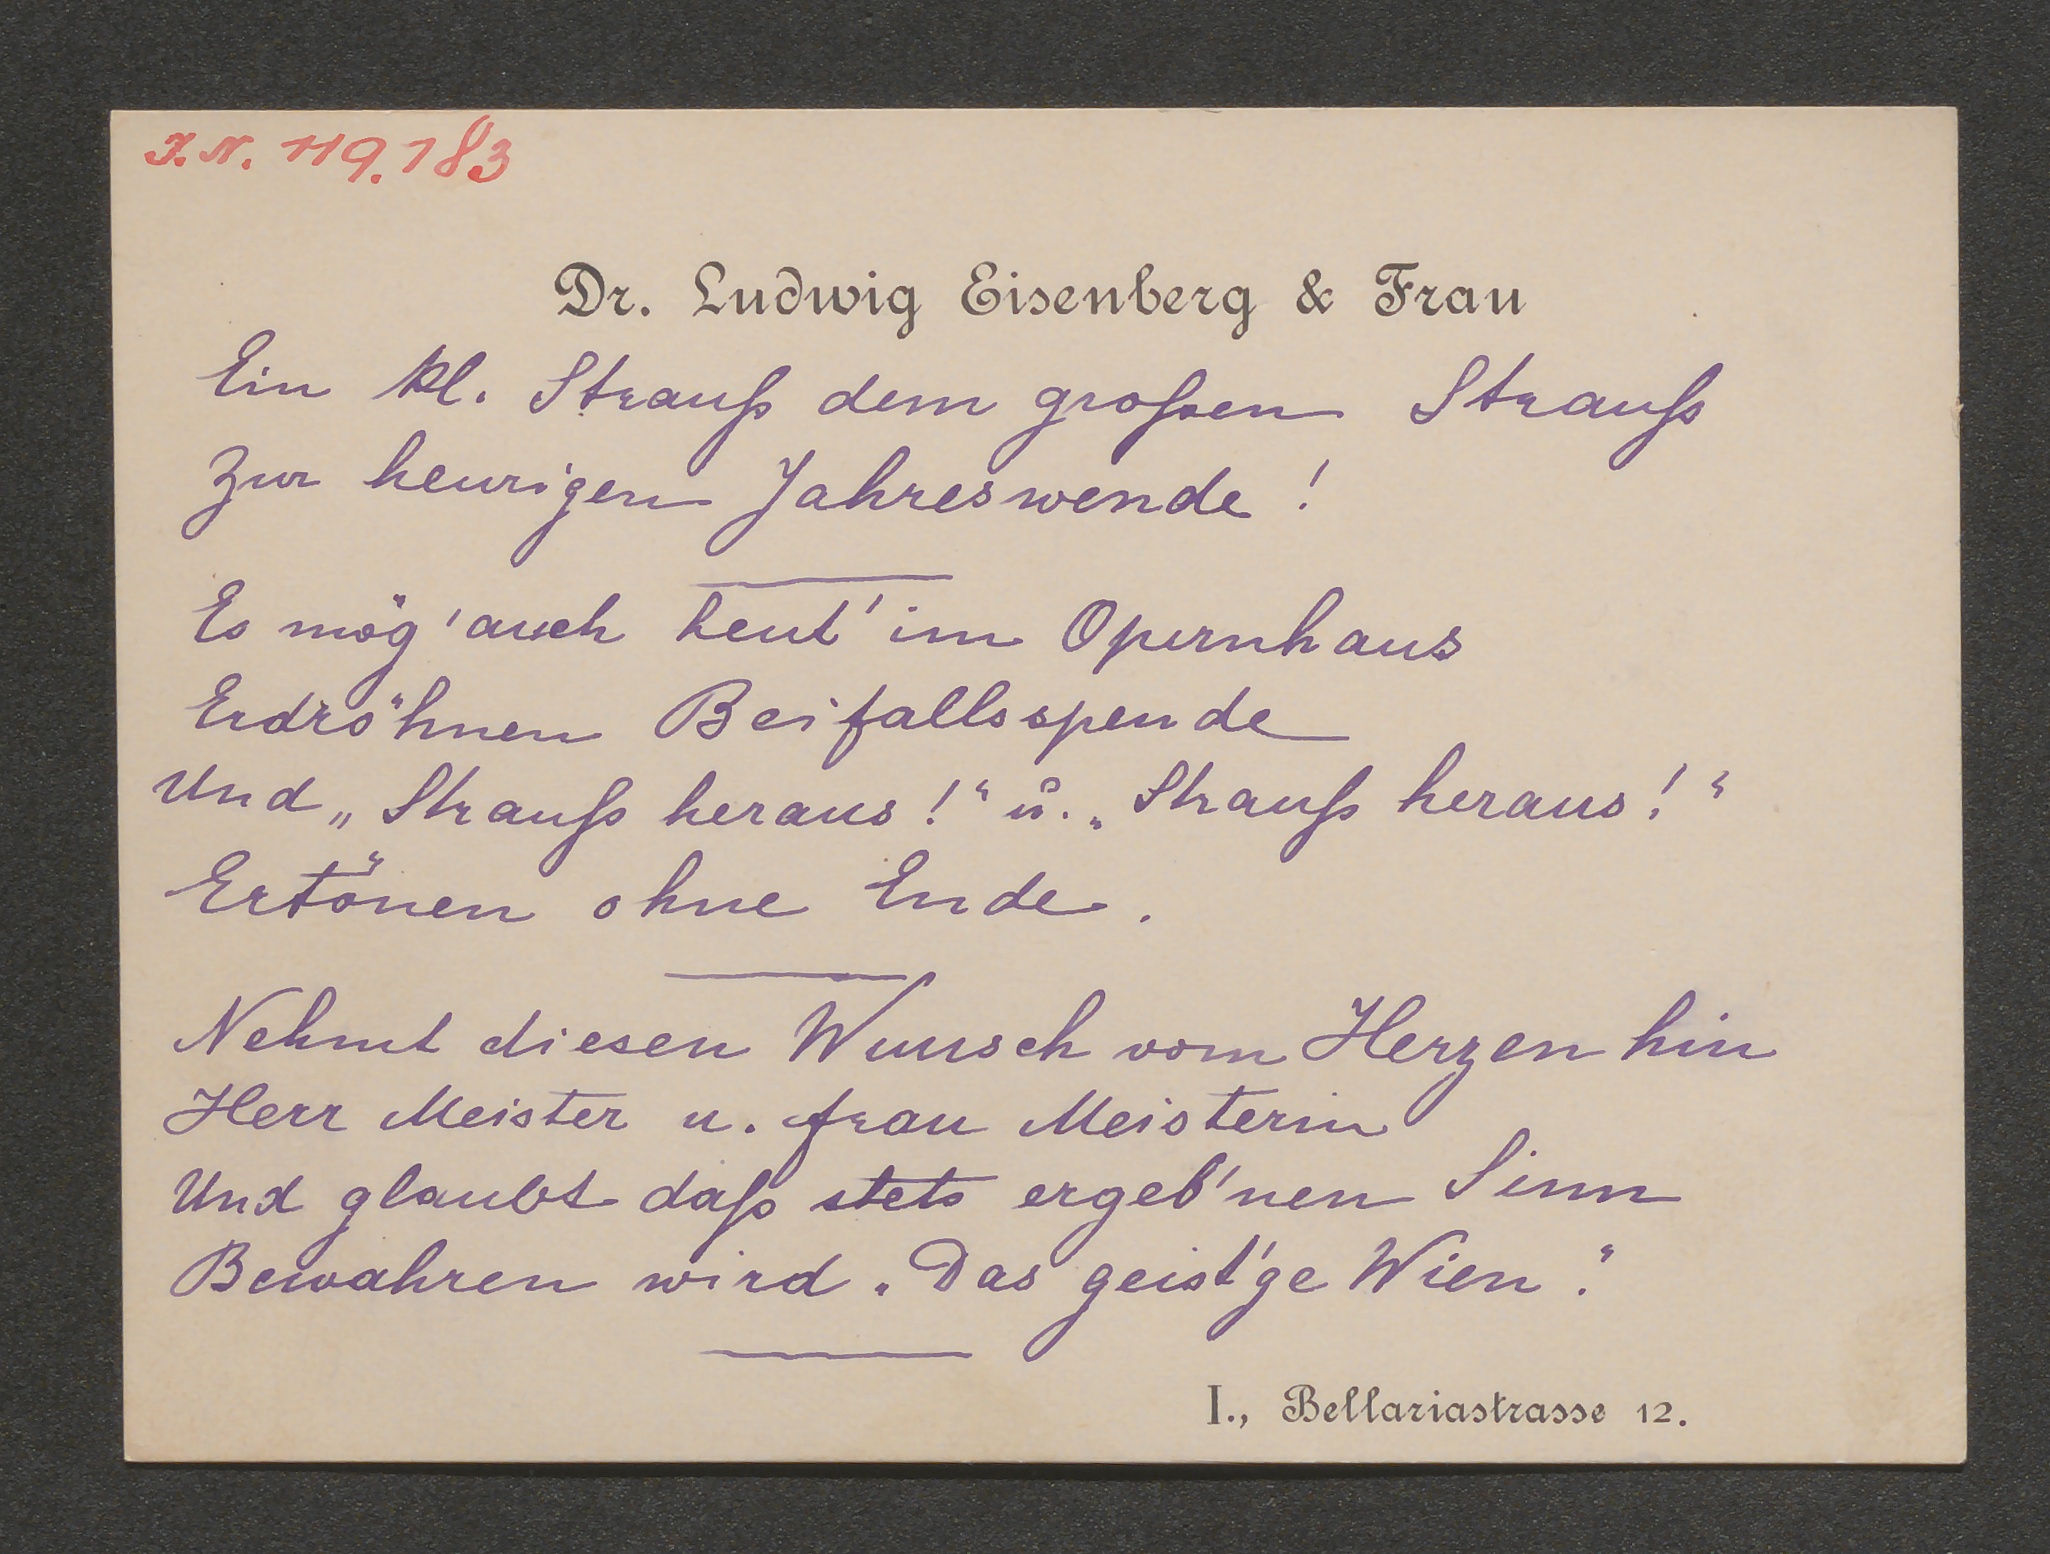 I.N. 119.183
Dr. Ludwig Eisenberg & Frau
Ein kl. Strauß dem großen Strauß
zur heurigen Jahreswende!
Es mög' auch heut' im Opernhaus
Erdröhnen Beifallsspende
Und „Strauß heraus!“ u. „Strauß heraus!“
Ertönen ohne Ende.
Nehmt diesen Wunsch vom Herzen hin
Herr Meister u. Frau Meisterin
Und glaubt daß stets ergeb'nen Sinn
Bewahren wird „Das geist'ge Wien“.
I., Bellariastrasse 12.